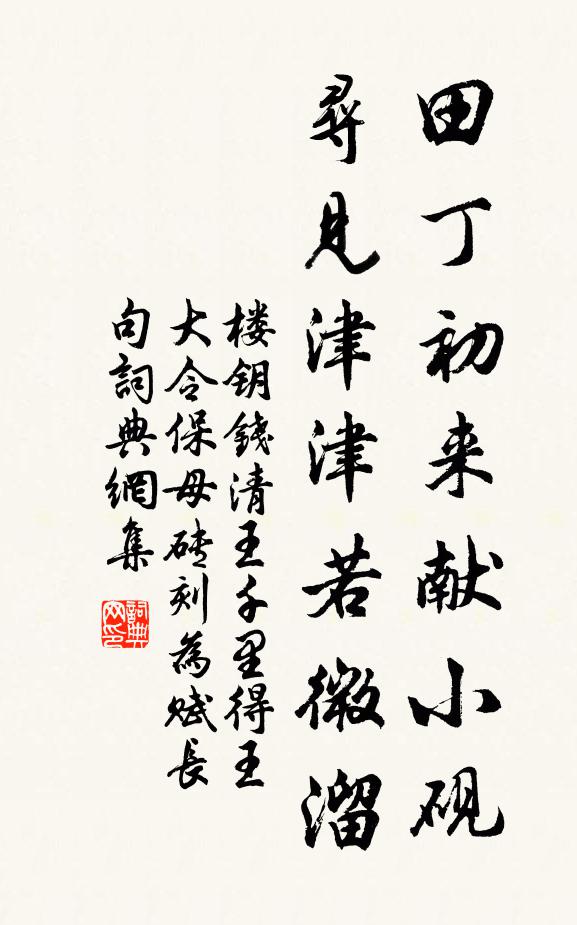 田丁初来献小砚
尋見津津若微溜
楼钥錢清王千里得王
大令保母砖刻為赋長
句詞典網集
詞典网印